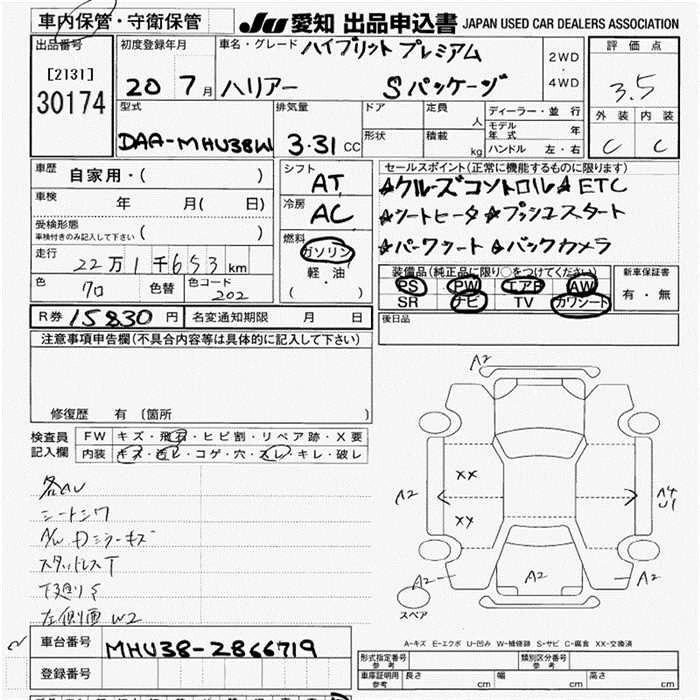 車内保管・守衛保管
JU 愛知 出品申込書 JAPAN USED CAR DEALERS ASSOCIATION
出品番号
[2131]
30174
初度登録年月
20 7月
車名・グレード ハイブリット プレミアム
ハリアー Sパッケージ
2WD
・
4WD
評価点
3.5
外装 内装
C C
型式
DAA-MHU38W
排気量
3.31 CC
ドア
形状
定員 人
積載 kg
ディーラー・並行
モデル年式 年
ハンドル 左・右
車歴 自家用・( )
車検 年 月( 日)
受検形態
車検付きのみ記入して下さい ( )
走行 22万1千653km
色 クロ 色替 色コード 202
シフト AT
冷房 AC
燃料
ガソリン
軽・油
( )
セールスポイント(正常に機能するものに限ります)
☆クルーズコントロール☆ETC
☆シートヒータ☆プッシュスタート
☆パワーシート☆バックカメラ
装備品(純正品に限り○をつけてください)
PS PW エアB AW
SR ナビ TV カワシート
新車保証書
有・無
R券 15830円 名変通知期限 月 日
後日品
注意事項申告欄(不具合内容等は具体的に記入して下さい)
修復歴 有 (箇所 )
検査員
記入欄
FW キズ・飛石・ヒビ割・リペア跡・X要
内装 キズ・汚レ・コゲ・穴・スレ・キレ・破レ
各AU
シートシワ
A/W Dミラーキズ
スタッドレスT
下廻りS
左側面W2
A2
A2
XX
XY
A4
U1
A2
A2
A2
スペア
A-キズ E-エクボ U-凹み W-補修跡 S-サビ C-腐食 XX-交換済
車台番号 MHU38-2866719
登録番号
形式指定番号 参考
類別区分番号 参考
車庫証明用 参考 長さ cm 幅 cm 高さ cm